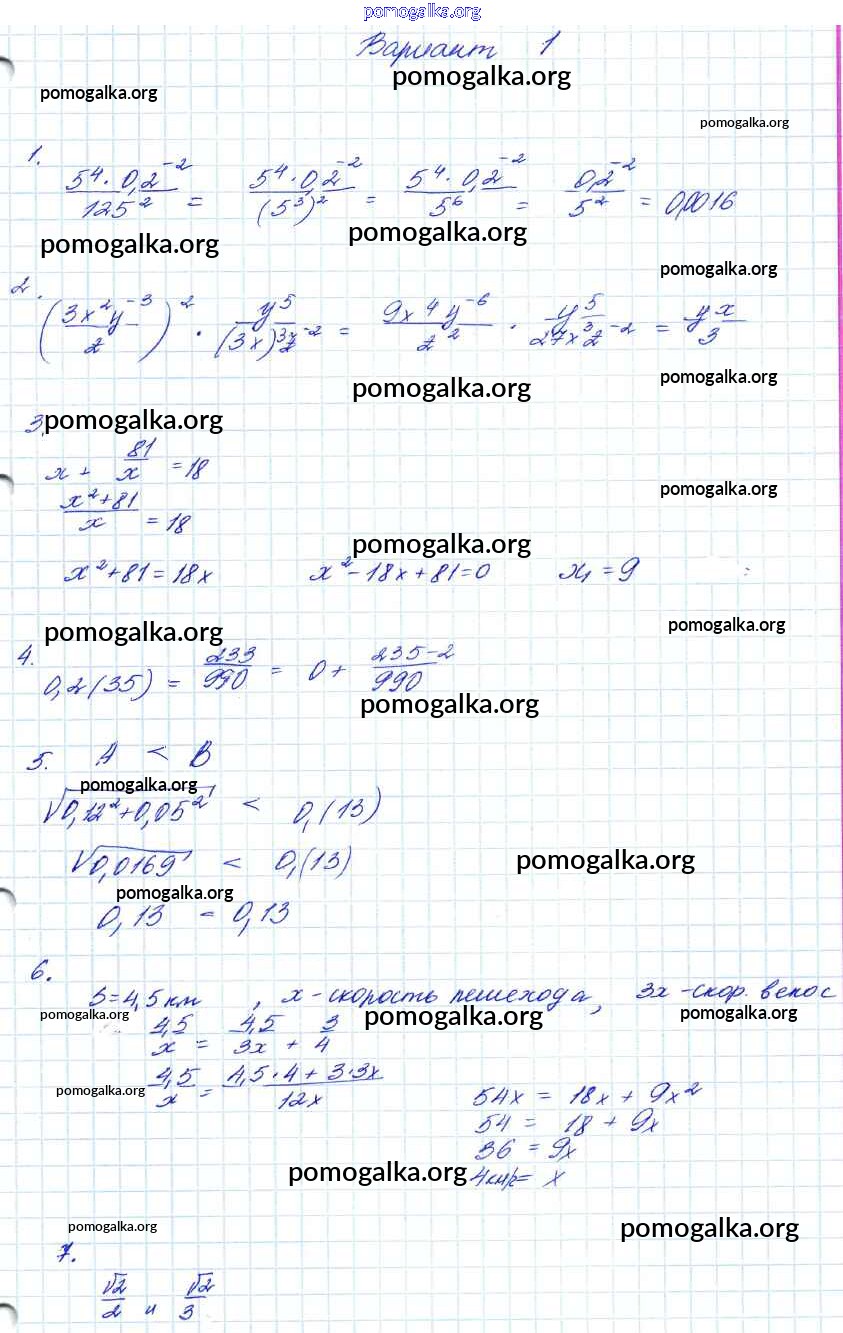 pomogalka.org
Вариант 1
pomogalka.org
pomogalka.org
pomogalka.org
1.
5⁴·0,2⁻²/125² = 5⁴·0,2⁻²/(5³)² = 5⁴·0,2⁻²/5⁶ = 0,2⁻²/5² = 0,0016
pomogalka.org
pomogalka.org
pomogalka.org
2.
(3x²y⁻³/z)² · y⁵/(3x)³z⁻² = 9x⁴y⁻⁶/z² · y⁵/27x³z⁻² = yx/3
pomogalka.org
pomogalka.org
3.
pomogalka.org
x + 81/x = 18
pomogalka.org
(x²+81)/x = 18
pomogalka.org
x²+81=18x x²-18x+81=0 x₁=9
pomogalka.org
pomogalka.org
4.
0,2(35) = 233/990 = 0 + (235-2)/990
pomogalka.org
5. A < B
pomogalka.org
√(0,12²+0,05²) < 0,(13)
√0,0169 < 0,(13)
pomogalka.org
pomogalka.org
0,13 = 0,13
6.
S=4,5 км, x-скорость пешехода, 3x-скор. велос
pomogalka.org
pomogalka.org
pomogalka.org
4,5/x = 4,5/3x + 3/4
pomogalka.org
4,5/x = (4,5·4+3·3x)/12x
54x = 18x + 9x²
54 = 18 + 9x
36 = 9x
pomogalka.org
4 = x
pomogalka.org
pomogalka.org
7.
√2/2 и √2/3